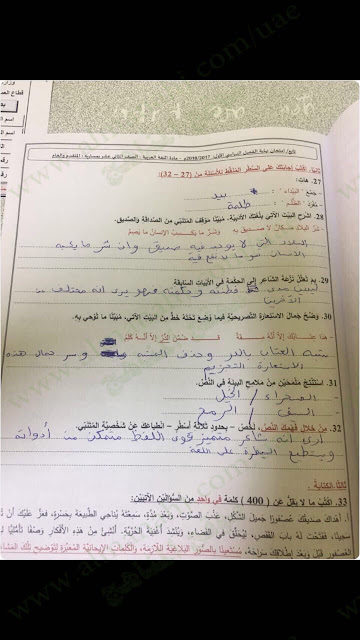 تابع/ امتحان نهاية الفصل الدراسي الأول، 2016/2017م - مادة اللغة العربية - الصف الثاني عشر بمساريه: المتقدم والعام
ثانيًا: اكتب إجابتك على السطر المناسب للأسئلة من (27 – 32):
27. هات:
- جمع " البيداء " : بيد
- مفرد " الظُّلَم " : ظلمة
28. اشرح البيت الآتي بلغتك الأدبية، مبيّنًا موقف المتنبي من الصداقة والصديق.
- شَرُّ البِلادِ مَكانٌ لا صَديقَ بِهِ وَشَرُّ ما يَكسِبُ الإِنسانُ ما يَصِمُ
البلاد التي لا يوجد فيه صديق وإن شر ما يكسبه
الإنسان هو ما
29. بم تعلل نزعة الشاعر إلى الحكمة في الأبيات السابقة.
ليبين مدى فطنته وحكمته فهو يرى أنه مختلف عن
الآخرين
30. وضّح جمال الاستعارة التصريحية فيما وُضع تحته خط من البيت الآتي، مبيّنًا ما توحي به.
- هذا عِتابُكَ إِلّا أَنَّهُ مِقَةٌ قَد ضُمِّنَ الدُّرَّ إِلّا أَنَّهُ كَلِمُ
شبه العتاب بالدر وحذف المشبه وسر جمال هذه
الاستعارة التجسيم
31. استنتج ملمحين من ملامح البيئة في النص.
- الصحراء / الخيل
- السيف / الرمح
32. من خلال فهمك النص، لخّص - بحدود ثلاثة أسطر - انطباعك عن شخصية المتنبي.
أرى أنه شاعر متميز قوي اللفظ متمكن من أدواته
ويستطيع السيطرة على اللغة
ثالثًا: الكتابة:
33. اكتب ما لا يقل عن ( 400 ) كلمة في واحد من السؤالين الآتيين:
1. أهداك صديقك عصفورًا جميل الشكل، عذب الصوت، وبعد مدة، سمعته يناجي الطبيعة بحسرة، فعز عليك أن
سجينًا، ففتحت له باب القفص، ليحلق في الفضاء، وينشد أغنية الحرية. أنشئ من هذه الأفكار وصفًا تأمليًا
العصفور قبل وبعد إطلاقك سراحه، مستعينًا بالصور البلاغية اللازمة، والكلمات الإيحائية المعبرة لتوضيح تلك المشا